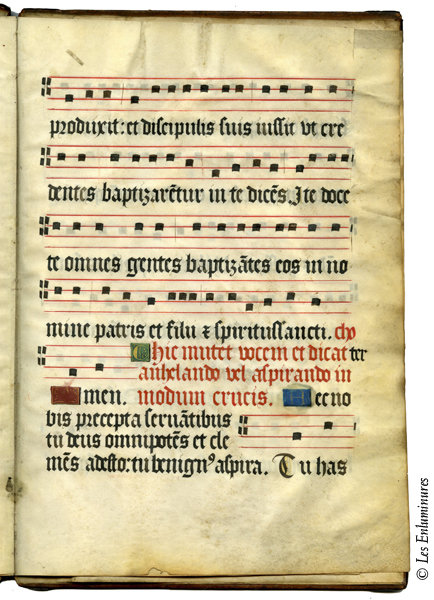 produxit: et discipulis suis iussit vt cre
dentes baptizarẽtur in te dicẽs. Ite doce
te omnes gentes baptizãtes eos in no
mine patris et filii ⁊ spiritussancti. cho
Chic mutet vocem et dicat ter
anhelando vel aspirando in
Amen. modum crucis. Hec no
bis precepta seruãtibus
tu deus omnipotẽs et cle
mẽs adesto: tu benignꝰ aspira. Tu has
© Les Enluminures